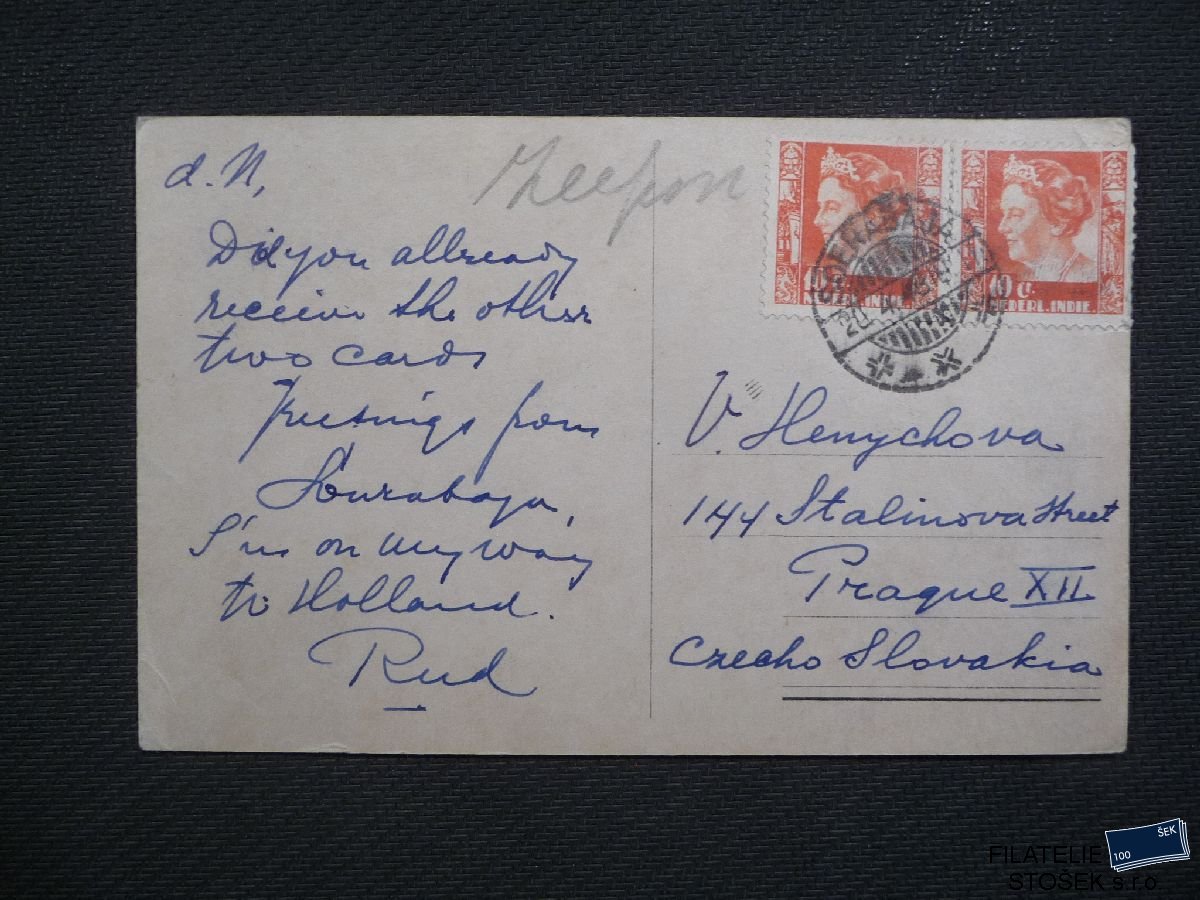 d. N,
Did you allready
receive the other
two cards
Greetings from
Sourabaya,
I'm on my way
to Holland.
Rud
Zeepost
10 c.
NEDERL. INDIE.
SOERABAJA
V. Henychova
144 Stalinova Street
Prague XII
Czecho Slovakia
100 ŠEK
FILATELIE
STOŠEK s.r.o.